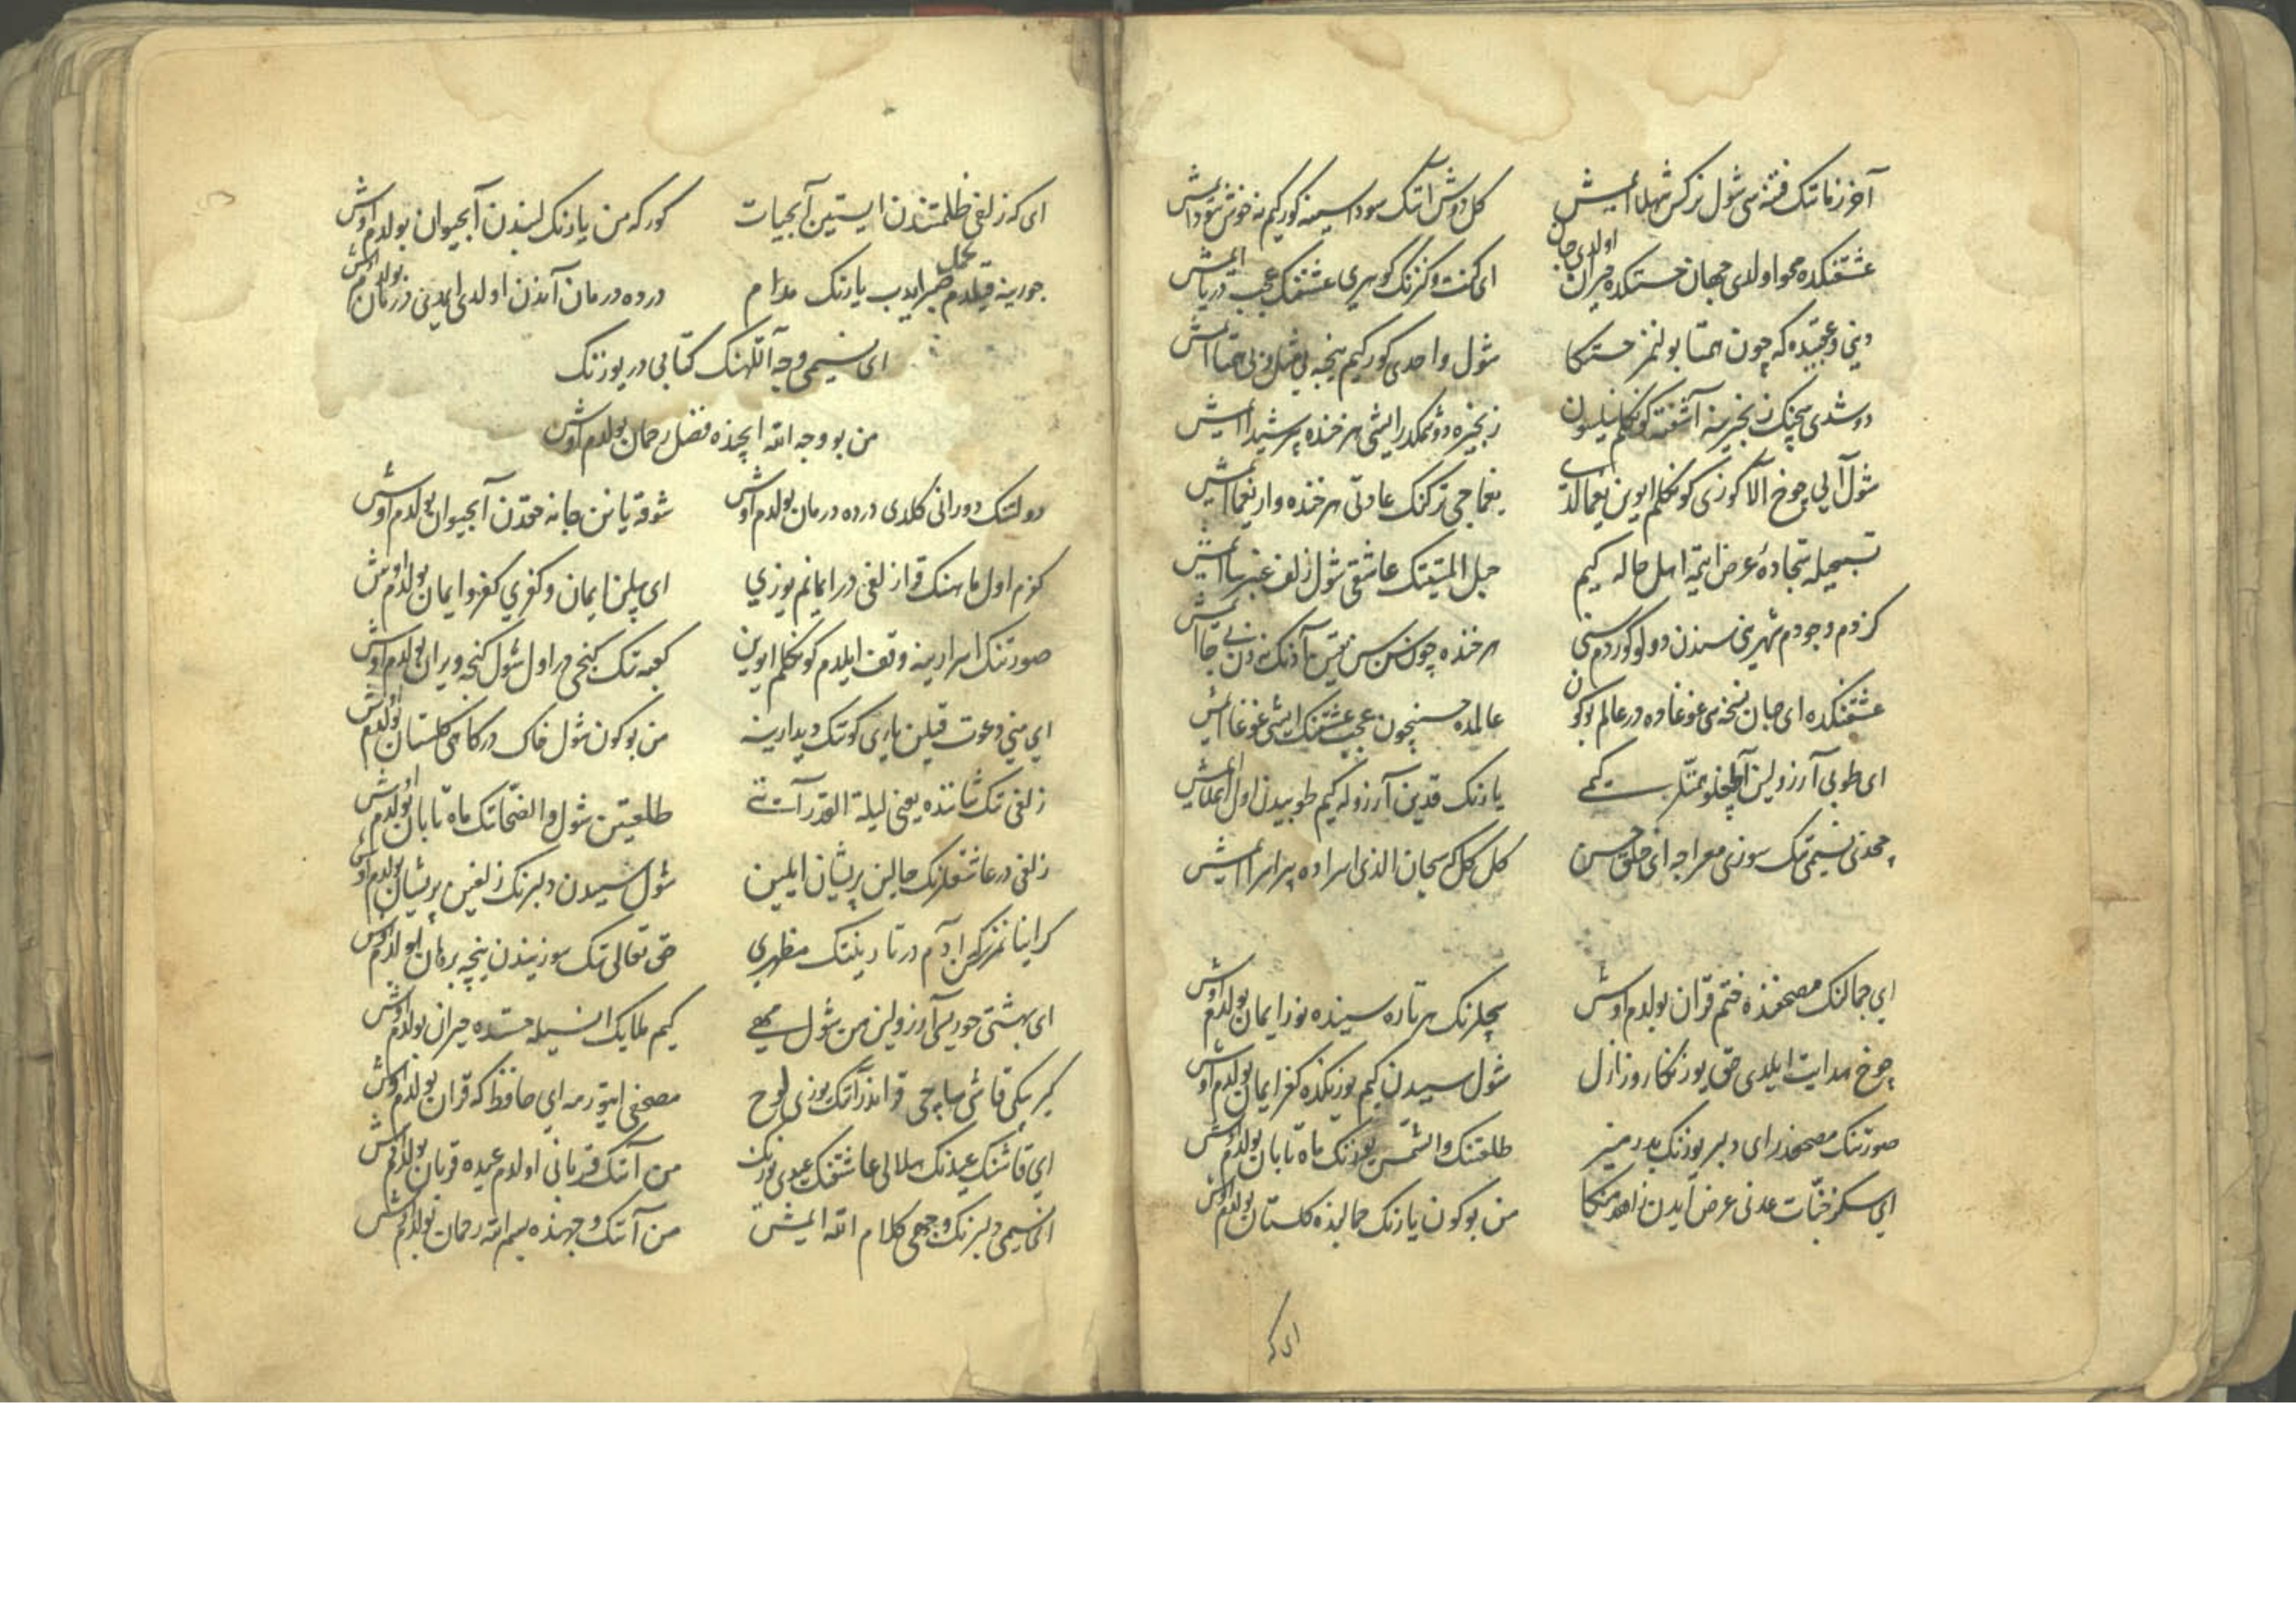 آخر زمانك فتنه سی شول نركس شهلا ایمیش کل دوش آنك سوداسینه کورکیم نه خوش سودا ایمیش
عشقنکده محو اولدی جهان حسنکده حیران اولدی جان ای کنت و کنزنك کوهری عشقنك عجب دریا ایمیش
دینی وعقبیده که چون همتا بولنمز حسنکا شول واحدی کورکیم نیجه بی مثل و بی همتا ایمیش
دوشدی ساچنك زنجیرینه آشفته کونکلم نیلسون زنجیره دوشمکدر ایشی هر خنده بیر شیدا ایمیش
شول آلی چوخ آلا کوزی کونکلم ایوین یغمالدی یغماجی ترکنك عادتی هر خنده وار یغما ایمیش
تسبیحله سجاده‌ٔ عرض ایتمه اهل حاله کیم حبل المتینك عاشقی شول زلف عنبرسا ایمیش
کزدم وجودم شهرینی سندن دولو کوردم سنی هر خنده چون سن سن یقین آدنك ندن بی جا ایمیش
عشقنکده ای جان نسخه سی غوغا ده در عالم بوکون عالمده حسننچون عجب عشقنك ایشی غوغا ایمیش
ای طوبی آرزولین کمسه یارنك قدین آرزوله کیم طوبیدن اول اعلا ایمیش
چون نسیمی نك سوزی معراجه ای خلق حسن کل کل که سبحان الذی اسرا ده بیر اسرا ایمیش
ای جمالنك مصحفنده ختم قرآن بولدم اوش ساچلرنك هر تاره سینده نور ایمان بولدم اوش
چوخ هدایت ایلدی حق یوزنکا روز ازل شول سبیدن کیم یوزنکده کفر ایمان بولدم اوش
صورتنك مصحفدر ای دلبر یوزنك بدر منیر طلعتنك والشمس یوزنك ماه تابان بولدم اوش
ای سکز جنات عدنی عرض ایدن زاهد منکا من بوکون یارنك جمالنده کلستان بولدم اوش
ای که
ای که زلفی ظلمتندن ایستین آبحیات کورکه من یارنك لبندن آبحیوان بولدم اوش
جورینه قیلدم تحمل صبر ایدب یارنك مدام درده درمان آندن اولدی ایمدی درمان بولدم اوش
ای نسیمی وجه آللهنك کتابی در یوزنك
من بو وجه الله ایچنده فضل رحمان بولدم اوش
دولتنك دورانی کلدی درده درمان بولدم اوش شوقه یانن جانه حقدن آبحیوان بولدم اوش
کوزم اول ماهنك قرا زلفی در ایمانم یوزی ای بیلن ایمان و کفری کفر و ایمان بولدم اوش
صورتنك اسرارینه وقف ایلدم کونکلم ایوین کعبه نك کنجی در اول شول کنجه ویران بولدم اوش
ای منی دعوت قیلن یاری کوتك دیدارینه من بوکون شول خاك درکاهی کلستان بولدم اوش
زلفی نك شاننده یعنی لیلة القدر آیتی طلعتین شول والضحانك ماه تابان بولدم اوش
زلفی در عاشقلرنك حالین پریشان ایلین شول سبیدن دلبرنك زلفین پریشان بولدم اوش
کر اینانمزسن کم آدم در تا رینك مظهری حق تعالی نك سوزیندن نیجه برهان بولدم اوش
ای بهشتی حوریله آرزولین من شول مهی کیم ملایك انسیله حسنده حیران بولدم اوش
کیربیکی قاشی ساچی قراندر آنك یوزی لوح مصحفی ایتورمه ای حافظ که قرآن بولدم اوش
ای قاشنك عیدنك هلالی عاشقنك عیدی یوزنك من آنك قربانی اولدم عیده قربان بولدم اوش
ای نسیمی دلبرنك وجهی کلام الله ایمیش من آنك وجهنده بسم الله رحمان بولدم اوش